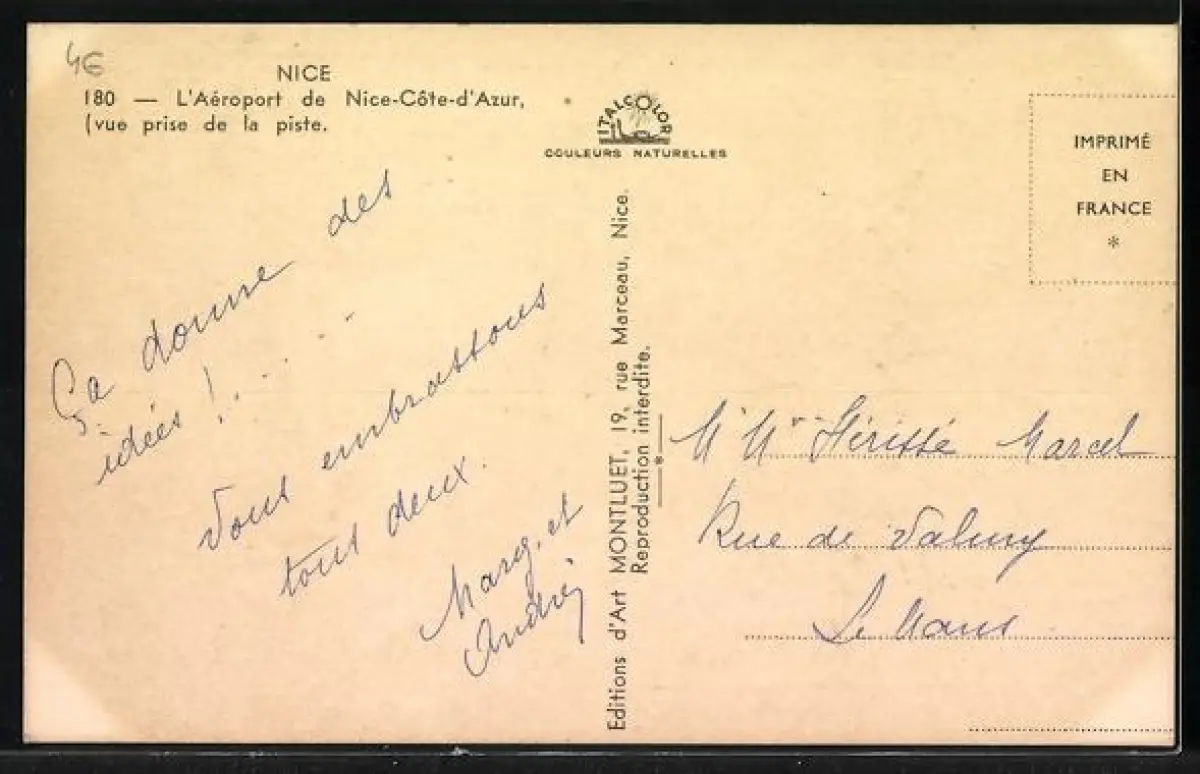 4€
NICE
180 — L'Aéroport de Nice-Côte-d'Azur,
(vue prise de la piste.
ITALCOLOR
COULEURS NATURELLES
IMPRIMÉ
EN
FRANCE
*
Ça donne des
idées !.....
Vous embrassons
tous deux.
Marg. et
André
Editions d'Art MONTLUET, 19, rue Marceau, Nice.
Reproduction interdite.
*
Mr Mme Hérissé Marcel
Rue de Valmy
Le Mans